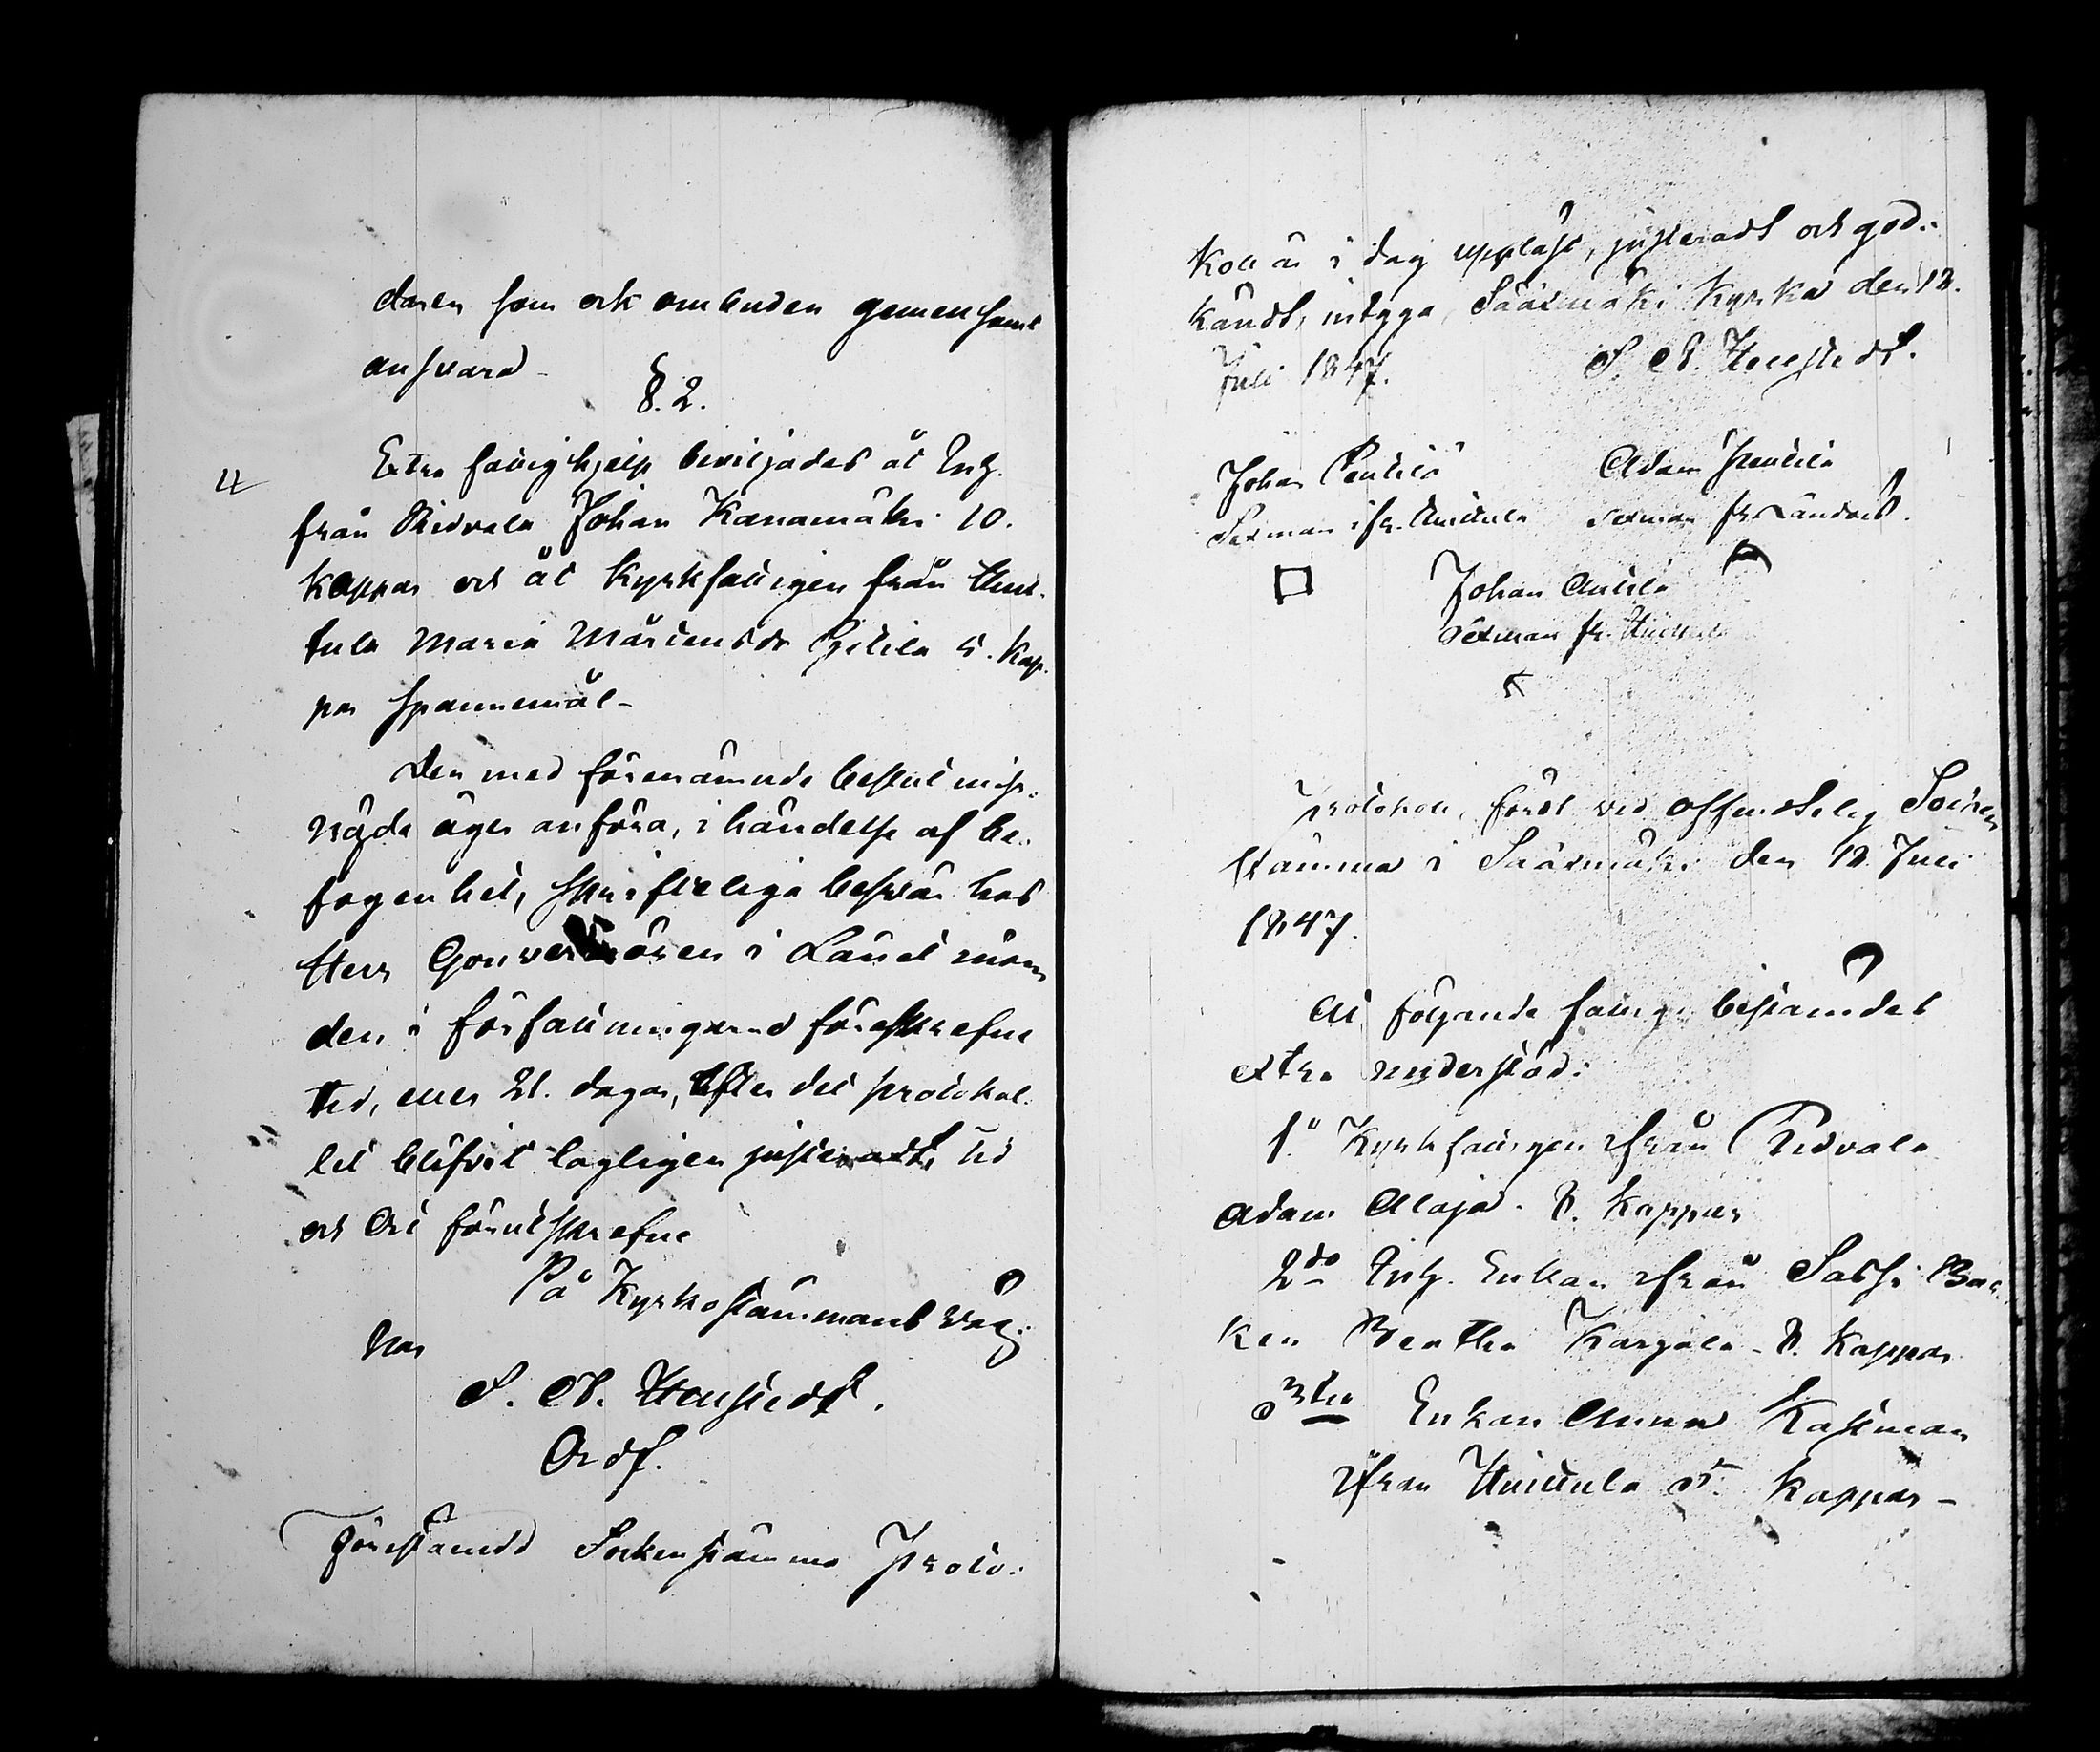 daren som ock ombuden gemensamt
ansvara -
§. 2.
4
Extra fattighjelp beviljades åt Inh.
från Ridvala Johan Kanamäki 10.
kappar och åt kyrkfattigen från Hut-
tula Maria Mårtensdr 5. kap-
par spannemål -
Den med förenämnde beslut miss-
nöjde äger anföra, i händelse af be-
fogenhet, skrifteliga besvär hos
Herr Gouvernören i Länet inom
den i författningarne föreskrefne
tid, eller 21. dagar, efter det protokol-
let blifvit lagligen justeradt, tid
och Ort förutskrefne
På Kyrkostämmans väg-
nar
S. A. Hellstedt.
Ordf.
Förestående Sockenstämmo Proto-
koll är i dag uppläst, justeradt och god-
kändt, intyga, Sääxmäki Kyrka den 12.
Juli 1847. S. A. Hellstedt.
Johan Pentilä Adam Penttilä
Sexman ifr. Huittula Sexman fr.
Johan Anttila
Sexman fr. Huittula
Protokoll, fördt vid offentelig Socken
stämma i Sääxmäki den 12. Juli
1847.
At följande fattige bestämdes
extra understöd:
1o Kyrkfattigen ifrån Ridvala
Adam Alaja. 8. kappar
2do Inh. Enkan ifrån Sassi Bac-
ken Beatha Karjala - 8. kappar
3tio Enkan Anna Kassman
ifrån Huittula 5. kappar -